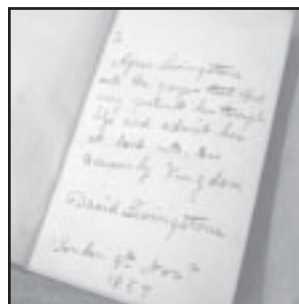 Agnes Livingstone
with the prayer that
may her through
life and admit her
at last into
heavenly Kingdom
David Livingstone
London 9th Novr
1857